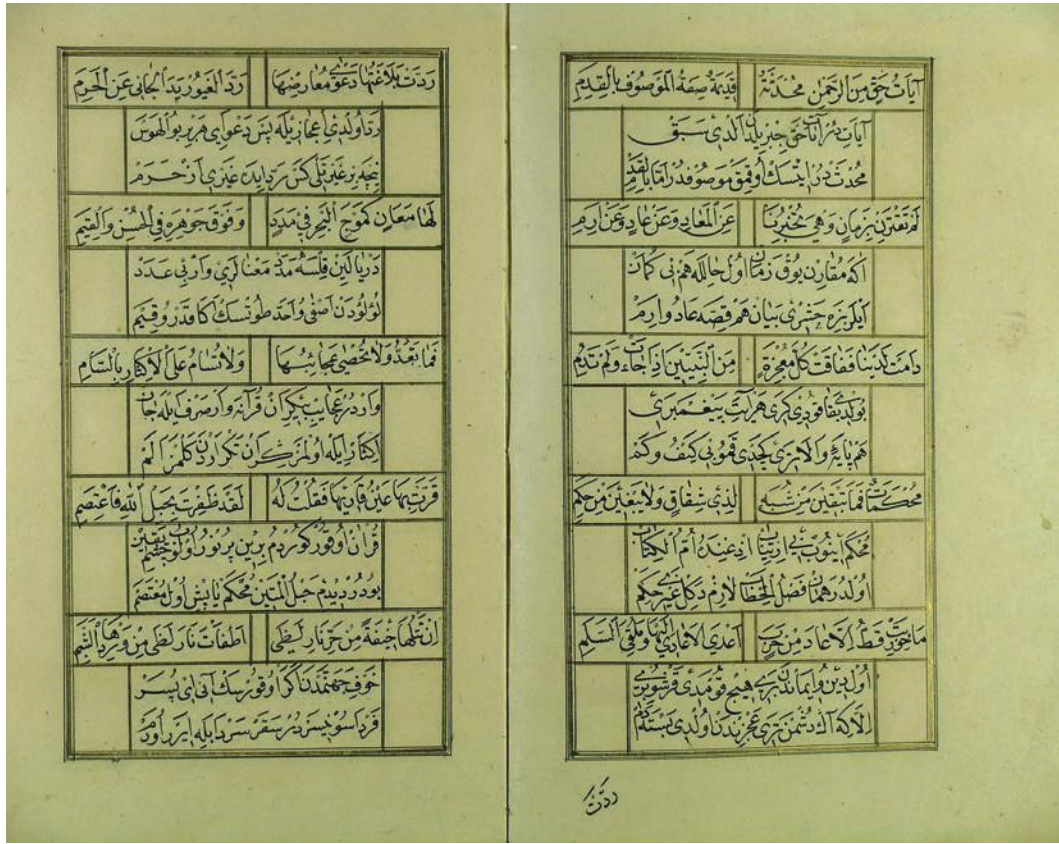 آيَاتُ حَقٍّ مِنَ الرَّحْمٰنِ مُحْدَثَةٌ قَدِيمَةٌ صِفَةُ الْمَوْصُوفِ بِالْقِدَمِ
آيات در آيات حق جبريلدن آلدى سبق
محدث در ايتسك اوقمق موصوفدر اما بالقدم
لَمْ تَقْتَرِنْ بِزَمَانٍ وَهِيَ تُخْبِرُنَا عَنِ الْمَعَادِ وَعَنْ عَادٍ وَعَنْ اِرَمِ
اكه مقارن يوق زمان اول حالله هم بى كمان
ايلر بزه حشرى بيان هم قصه عاد و ارم
دَامَتْ لَدَيْنَا فَفَاقَتْ كُلَّ مُعْجِزَةٍ مِنَ النَّبِيِّينَ اِذْ جَاءَتْ وَلَمْ تَدُمِ
بولدى بقا قودى كرى هر آيت پيغمبرى
هم پايۀ والالرى كچدى قمونى كيف و كم
مُحَكَّمَاتٌ فَمَا تُبْقِينَ مِنْ شُبَهٍ لِذِي شِقَاقٍ وَلَا يَبْغِينَ مِنْ حَكَمِ
محكم ايتوب بى ارتياب از عنده ام الكتاب
اولدر همان فصل الخطاب لازم دكل غيرى حكم
مَا حُورِبَتْ قَطُّ اِلَّا عَادَ مِنْ حَرَبٍ اَعْدَى الْاَعَادِي اِلَيْهَا مُلْقِيَ السَّلَمِ
اول دين و ايماندن برى هيچ قومدى قرشو برى
الا كه اك دشمن ترى عجزندن اولدى بسته دم
ردّت
رَدَّتْ بَلَاغَتُهَا دَعْوَى مُعَارِضِهَا رَدَّ الْغَيُورِ يَدَ الْجَانِي عَنِ الْحَرَمِ
رد اولدى اعجازيله پس دعواى هر بر بو الهوس
نيجه بر غيرتلى كس رد ايده غيرى از حرم
لَهَا مَعَانٍ كَمَوْجِ الْبَحْرِ فِي مَدَدٍ وَفَوْقَ جَوْهَرِهِ فِي الْحُسْنِ وَالْقِيَمِ
دريا لين قلسه مدد معنالرى وار بى عدد
لؤلؤدن اصفى واحد طوتسك اكا قدر و قيم
فَمَا تُعَدُّ وَلَا تُحْصَى عَجَائِبُهَا وَلَا تُسَامُ عَلَى الْاِكْثَارِ بِالسَّأَمِ
واردر عجايب بيكران قرآنه وار صرف ايله جان
اكثار ايله اولمز كران تكراردن كلمز الم
قَرَّتْ بِهَا عَيْنُ قَارِيهَا فَقُلْتُ لَهُ لَقَدْ ظَفِرْتَ بِحَبْلِ اللّٰهِ فَاعْتَصِمِ
قرآن اوقور كوردم برين پر نور اولوب چشم يقين
بودر ديدم حبل المتين محكم ياپيش اول معتصم
اِنْ تَتْلُهَا خِيفَةً مِنْ حَرِّ نَارِ لَظَى اَطْفَأْتَ نَارَ لَظَى مِنْ وِرْدِهَا الشَّبِمِ
خوف جهنمدن اكر اوقورسك آنى اى پسر